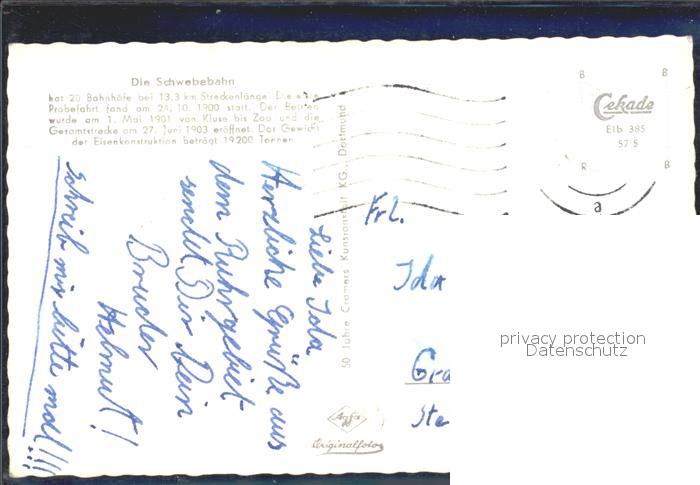 Die Schwebebahn
hat 20 Bahnhöfe bei 13.3 km Streckenlänge. Die erste
Probefahrt fand am 24. 10. 1900 statt. Der Betrieb
wurde am 1. Mai 1901 von Kluse bis Zoo und die
Gesamtstrecke am 27. Juni 1903 eröffnet. Das Gewicht
der Eisenkonstruktion beträgt 19200 Tonnen.
Liebe Ida
Herzliche Grüße aus
dem Ruhrgebiet
sendet Dir Dein
Bruder
Helmut!
Schreib mir bitte mal!!!
50 Jahre Cramers Kunstanstalt KG., Dortmund
Agfa
Originalfoto
B B
Cekade
Elb 385
57/5
R B
a
Frl.
Ida
Gra
Ste
privacy protection
Datenschutz